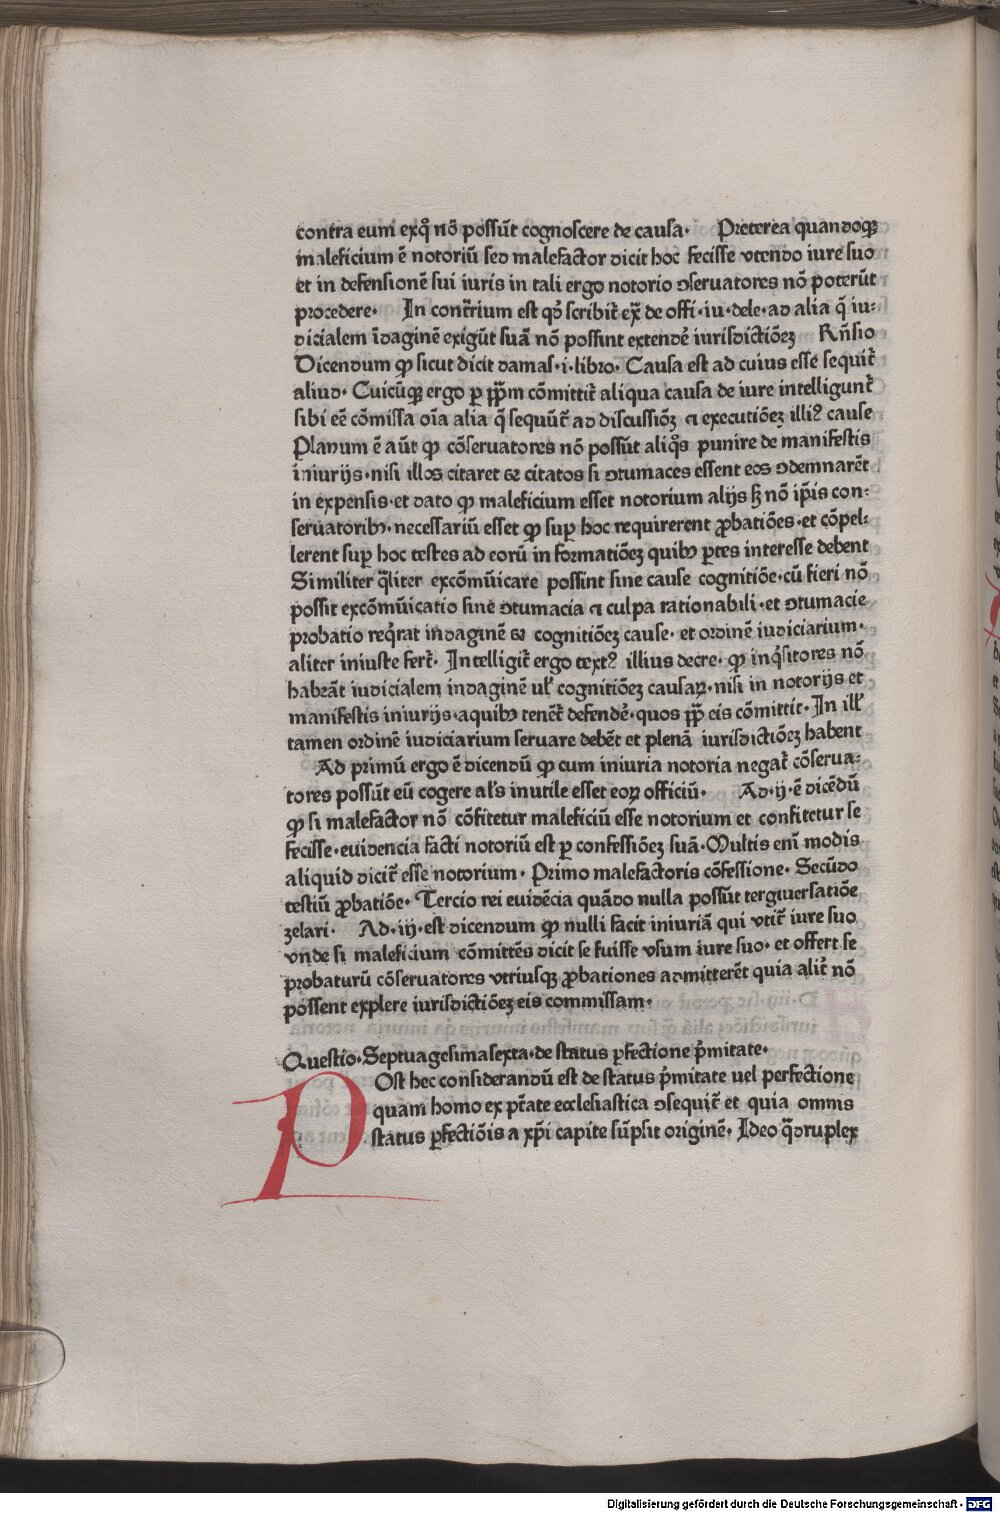 contra eum exq̊ nō possūt cognoscere de causa· Preterea quandoqꝫ
maleficium ē notoriū sed malefactor dicit hoc fecisse vtendo iure suo
et in defensionē sui iuris in tali ergo notorio ꝯseruatores nō poterūt
procedere· In contr̄ium est qd̕ scribit̄ ex̄ de offi·iu·dele·ad alia q̄ iu:
dicialem īdaginē exigūt suā nō possint extendē iurisdictiōeꝫ Rn̄sio
Dicendum ꝙ sicut dicit damas·i·libro· Causa est ad cuius esse sequit̄
aliud· Cuicūqꝫ ergo ꝑ pp̄m cōmittit̄ aliqua causa de iure intelligunt̄
sibi eē cōmissa oīa alia q̄ sequūt̄ ad discussiōeꝫ ⁊ executiōeꝫ illiꝰ cause
Planum ē aūt ꝙ cōseruatores nō possūt aliq̊s punire de manifestis
iniurijs·nisi illos citaret & citatos si ꝯtumaces essent eos ꝯdemnarēt
in expensis·et dato ꝙ maleficium esset notorium alijs sꝫ nō ip̄is con:
seruatoribꝫ·necessariū esset ꝙ suꝑ hoc requirerent ꝓbatiōes·et cōpel:
lerent suꝑ hoc testes ad eorū in formatiōeꝫ quibꝫ ꝑtes interesse debent
Similiter q̄liter excōmūicare possint sine cause cognitiōe·cū fieri nō
possit excōmūicatio sine ꝯtumacia ⁊ culpa rationabili·et ꝯtumacie
probatio req̇rat indaginē & cognitiōeꝫ cause· et ordinē iudiciarium·
aliter iniuste fert̄· Intelligit̄ ergo textꝰ illius decre· ꝙ inq̇sitores nō
habeāt iudicialem indaginē ul̕ cognitiōeꝫ causaꝝ·nisi in notorijs et
manifestis iniurijs·aquibꝫ tenēt̄ defendē·quos pp̄ eis cōmittit· In ill̕
tamen ordinē iudiciarium seruare debēt et plenā iurisdictiōeꝫ habent
Ad primū ergo ē dicendū ꝙ cum iniuria notoria negat̄ cōserua:
tores possūt eū cogere al̕s inutile esset eoꝝ officiū· Ad·ij·ē dicēdū
ꝙ si malefactor nō cōfitetur maleficiū esse notorium et confitetur se
fecisse·euidencia facti notoriū est ꝑ confessiōeꝫ suā·Multis enī modis
aliquid dicit̄ esse notorium· Primo malefactoris cōfessione· Secūdo
testiū ꝓbatiōe· Tercio rei euidēcia quādo nulla possūt tergiuersatiōe
zelari· Ad·iij·est dicendum ꝙ nulli facit iniuriā qui vtit̄ iure suo
vnde si maleficium cōmittēs dicit se fuisse vsum iure suo· et offert se
probaturū cōseruatores vtriusqꝫ ꝓbationes admitterēt quia alit̄ nō
possent explere iurisdictiōeꝫ eis commissam·
Questio·Septuagesimasexta·de status ꝑfectione p̄mitate·
Post hec considerandū est de status p̄mitate uel perfectione
quam homo ex pt̄ate ecclesiastica ꝯsequit̄ et quia omnis
status ꝑfectiōis a xp̄i capite sūpsit originē· Ideo q̄druplex
Digitalisierung gefördert durch die Deutsche Forschungsgemeinschaft - DFG